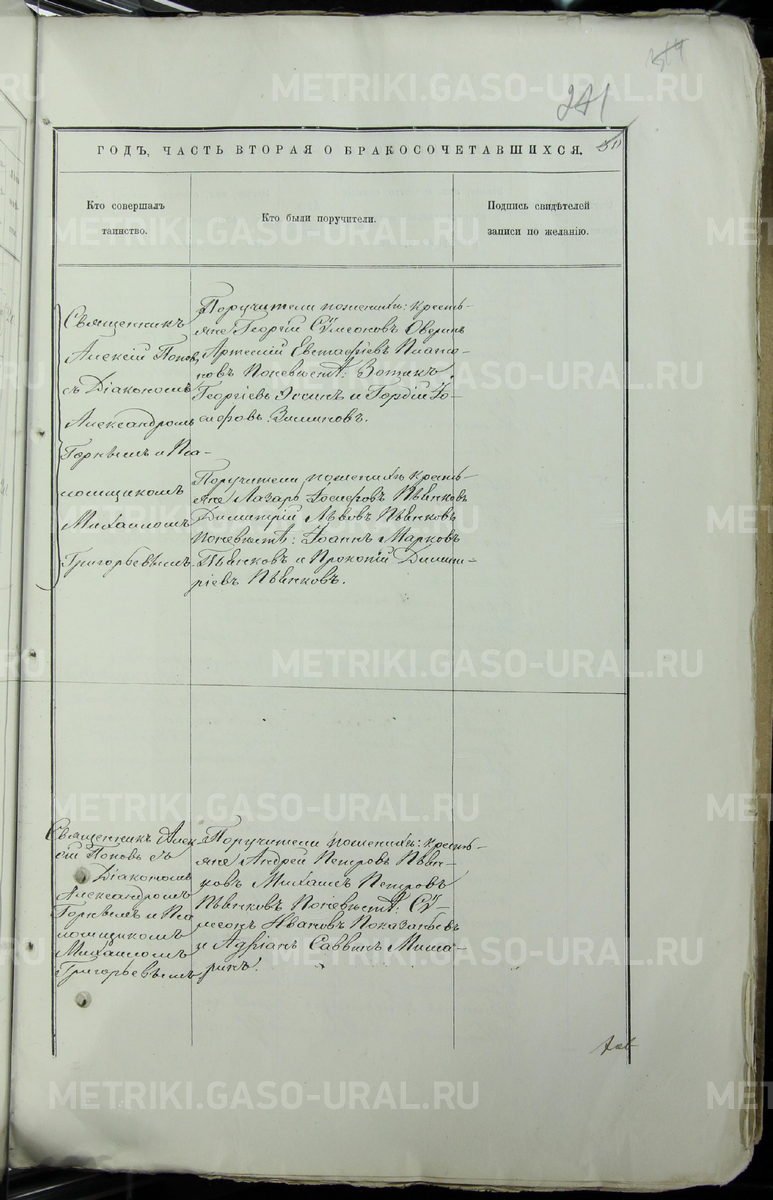 241
ГОДЪ, ЧАСТЬ ВТОРАЯ О БРАКОСОЧЕТАВШИХСЯ.
Кто совершалъ
таинство.
Кто были поручители.
Подпись свидѣтелей
записи по желанію.
Священникъ
Алексій Поповъ
съ Діакономъ
Александромъ
Горнымъ и Пса-
ломщикомъ
Михаиломъ
Григорьевымъ
Поручители по женихѣ: кресть-
яне Георгій Сѵмеоновъ Оверинъ
Артемій Евстафіевъ Плато-
новъ По невѣстѣ: Зотикъ
Георгіевъ и Гордій Іо-
сифовъ Зиминовъ.
Поручители по женихѣ кресть-
яне Лазарь Іосифовъ Пьянковъ
Димитрій Львовъ Пьянковъ
По невѣстѣ: Іоаннъ Марковъ
Пьянковъ и Прокопій Димит-
ріевъ Пьянковъ.
Священникъ Алек-
сій Поповъ съ
Діакономъ
Александромъ
Горнымъ и Пса
ломщикомъ
Михаиломъ
Григорьевымъ
Поручители по женихѣ: кресть-
яне Андрей Петровъ Пьян-
ковъ Михаилъ Петровъ
Пьянковъ По невѣстѣ: Сѵ-
меонъ Ивановъ Показаньевъ
и Адріанъ Саввинъ Миша-
ринъ.
METRIKI.GASO-URAL.RU